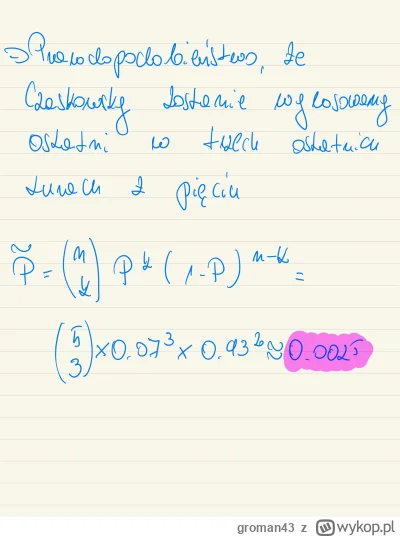 ⇒ Prawdopodobieństwo, że
Czaskowsky zostanie wylosowany
ostatni w trzech ostatnich
turach z pięciu
P̃ = (n k) P^k (1-P)^n-k =
(5 3) × 0.07^3 × 0.93^2 ≈ 0.0025
groman43 z wykop.pl